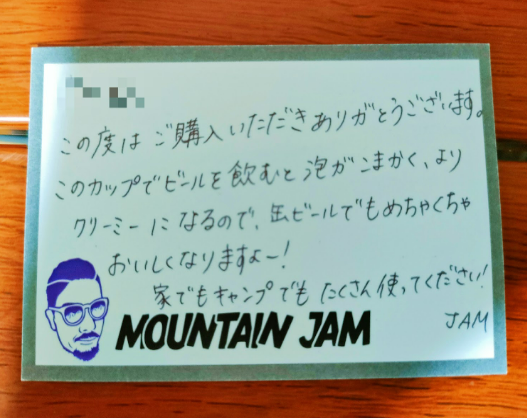 この度はご購入いただきありがとうございます。
このカップでビールを飲むと泡がこまかく、より
クリーミーになるので、缶ビールでもめちゃくちゃ
おいしくなりますよー!
家でもキャンプでもたくさん使ってください!
JAM
MOUNTAIN JAM